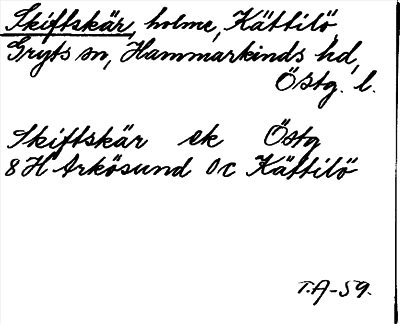 Skiftskär, holme, Kättilö,
Gryts sn, Hammarkinds hd,
Östg. l.
Skiftskär ek Östg
8H Arkösund 0c Kättilö
T.A-59.